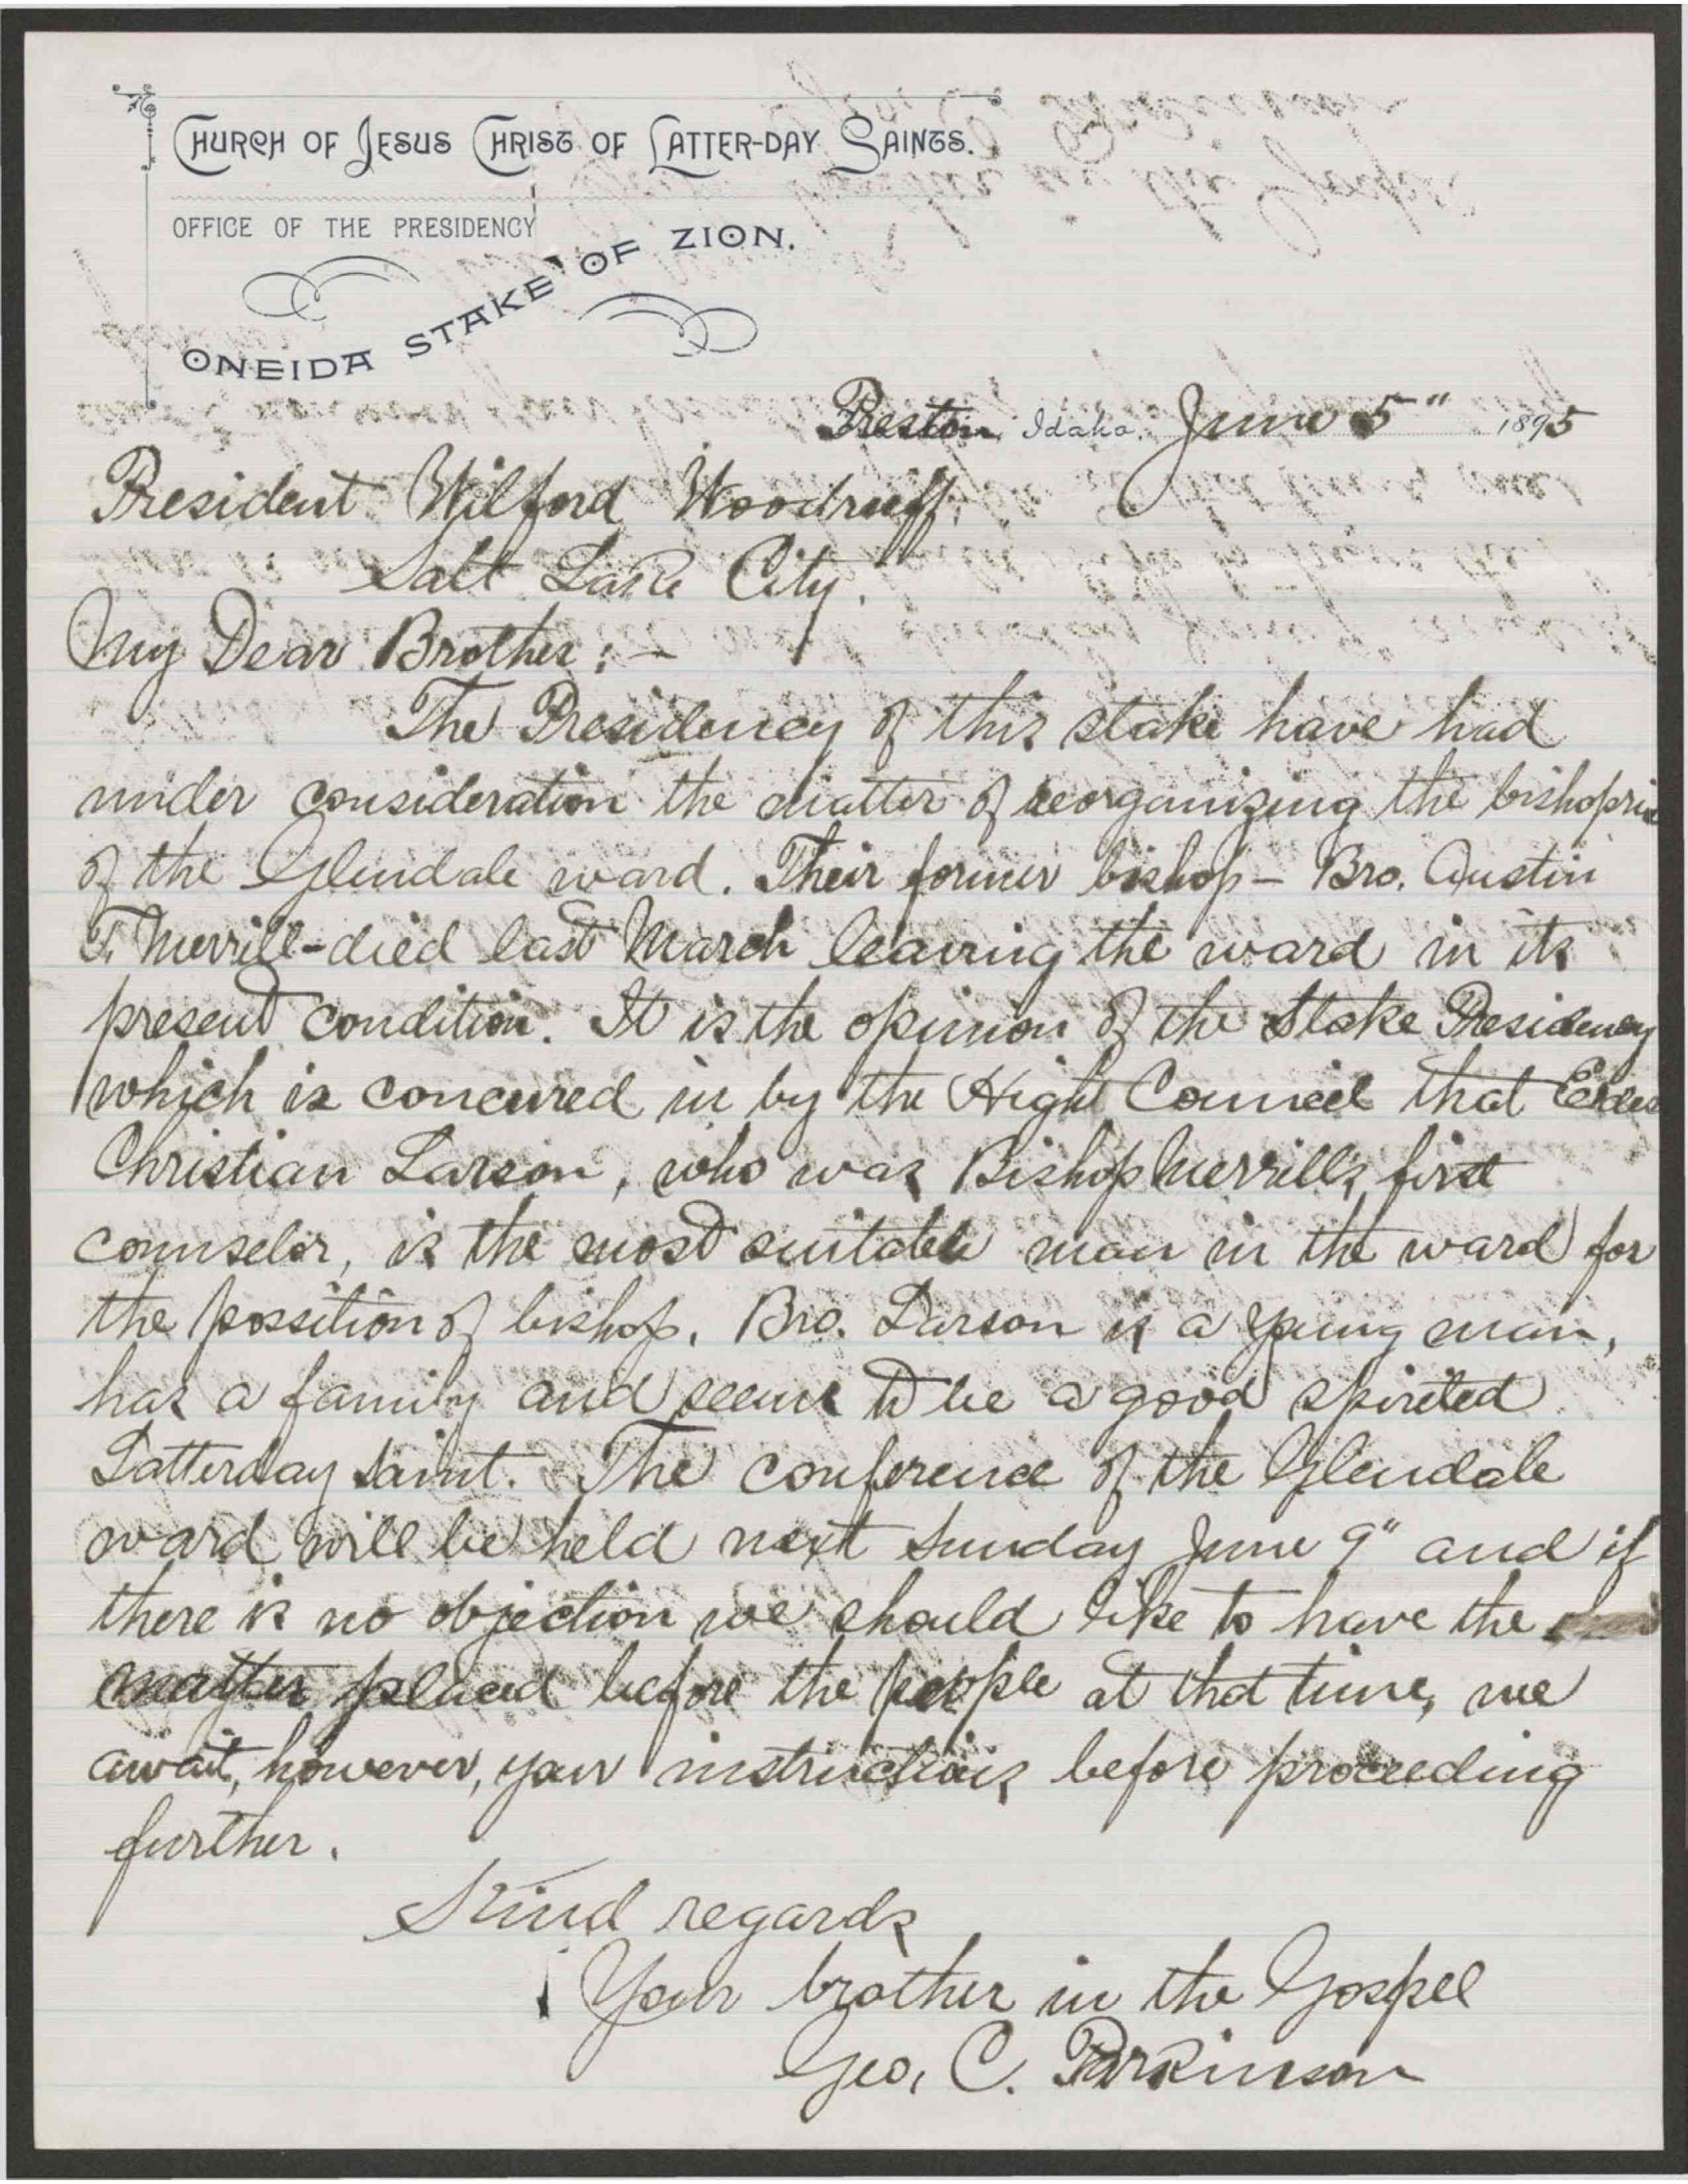 CHURCH OF JESUS CHRIST OF LATTER-DAY SAINTS.
OFFICE OF THE PRESIDENCY
ONEIDA STAKE OF ZION.
Preston, Idaho, June 5" 1895
President Wilford Woodruff.
Salt Lake City.
My Dear Brother:-
The Presidency of this stake have had
under consideration the matter of reorganizing the bishopric
of the Glendale ward. Their former bishop - Bro. Austin
T. Merrill - died last March leaving the ward in its
present condition. It is the opinion of the Stake Presidency
which is concured in by the High Council that Elder
Christian Larson, who was Bishop Merrill's first
counselor, is the most suitable man in the ward for
the possition of bishop. Bro. Larson is a young man,
has a family and seems to be a good spirited
Latterday Saint. The conference of the Glendale
ward will be held next Sunday June 9" and if
there is no objection we should like to have the
matter placed before the people at that time, we
await, however, your instructions before proceeding
further.
Kind regards
Your brother in the Gospel
Geo. C. Parkinson